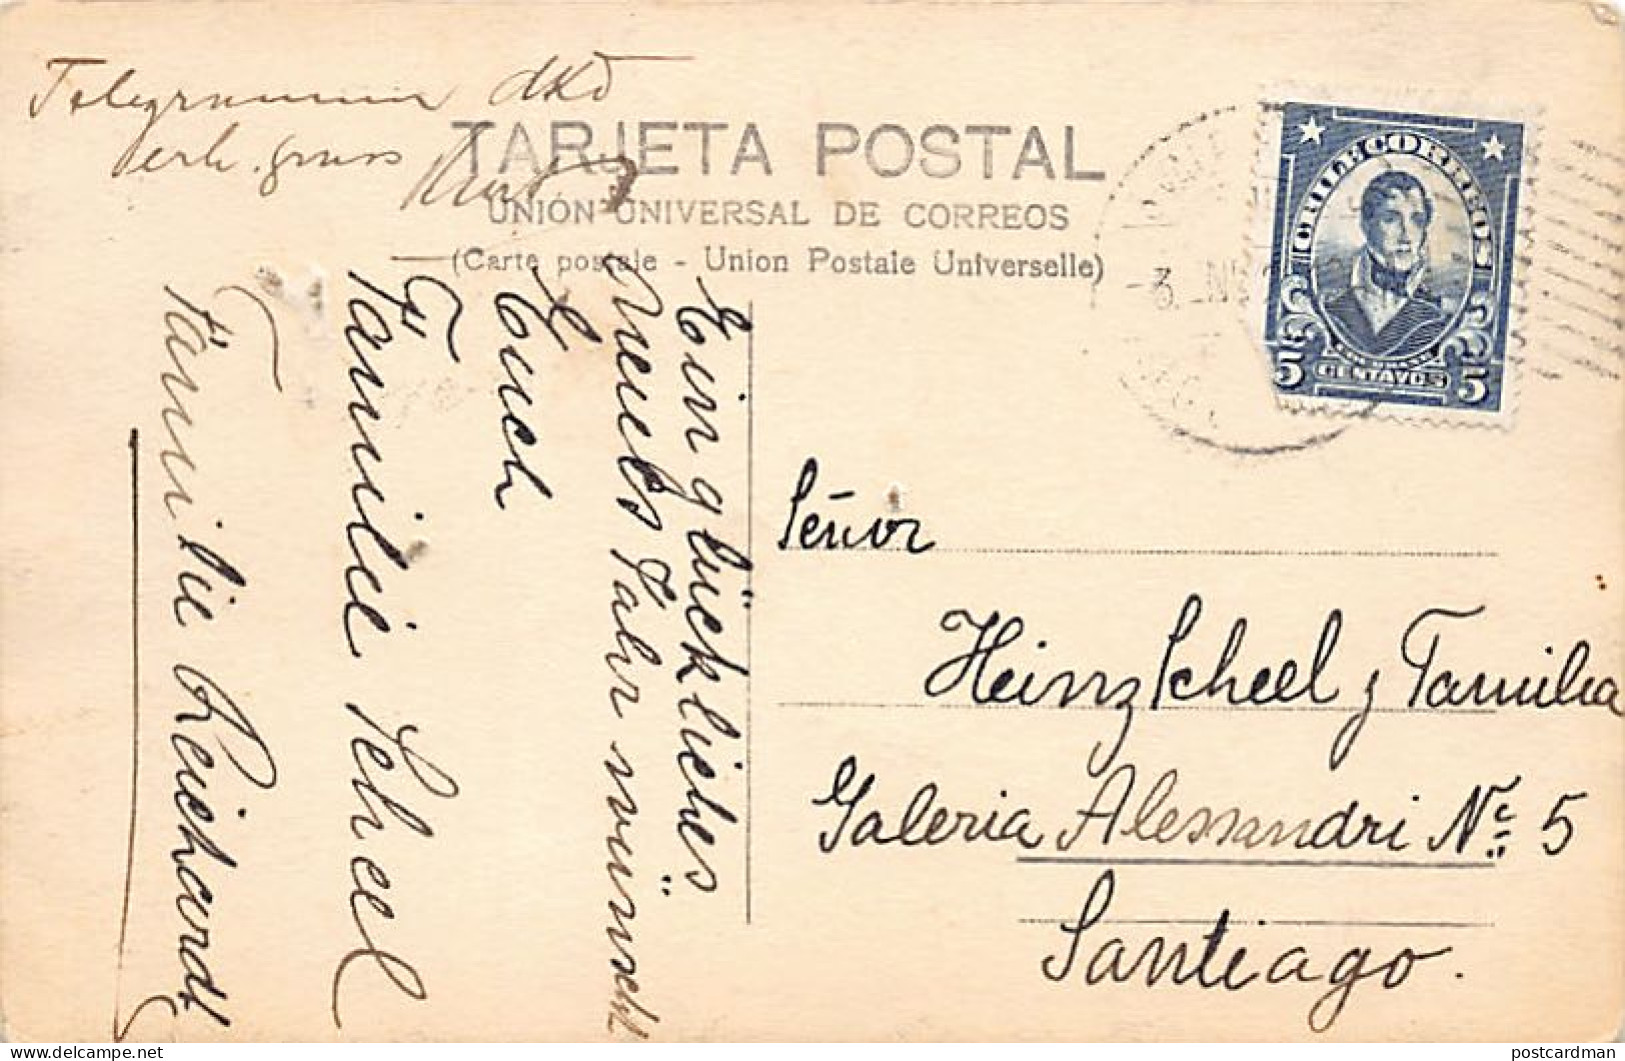 Telegramm dkd
verb. gruss
Kurt
TARJETA POSTAL
UNIÓN UNIVERSAL DE CORREOS
(Carte postale - Union Postale Universelle)
CHILE CORREOS
5 CENTAVOS 5
Ein glückliches
Neues Jahr wünscht
Euch
Familie Scheel
Familie Reichardt
Señor
Heinz Scheel y Familia
Galeria Alessandri No 5
Santiago.
postcardman